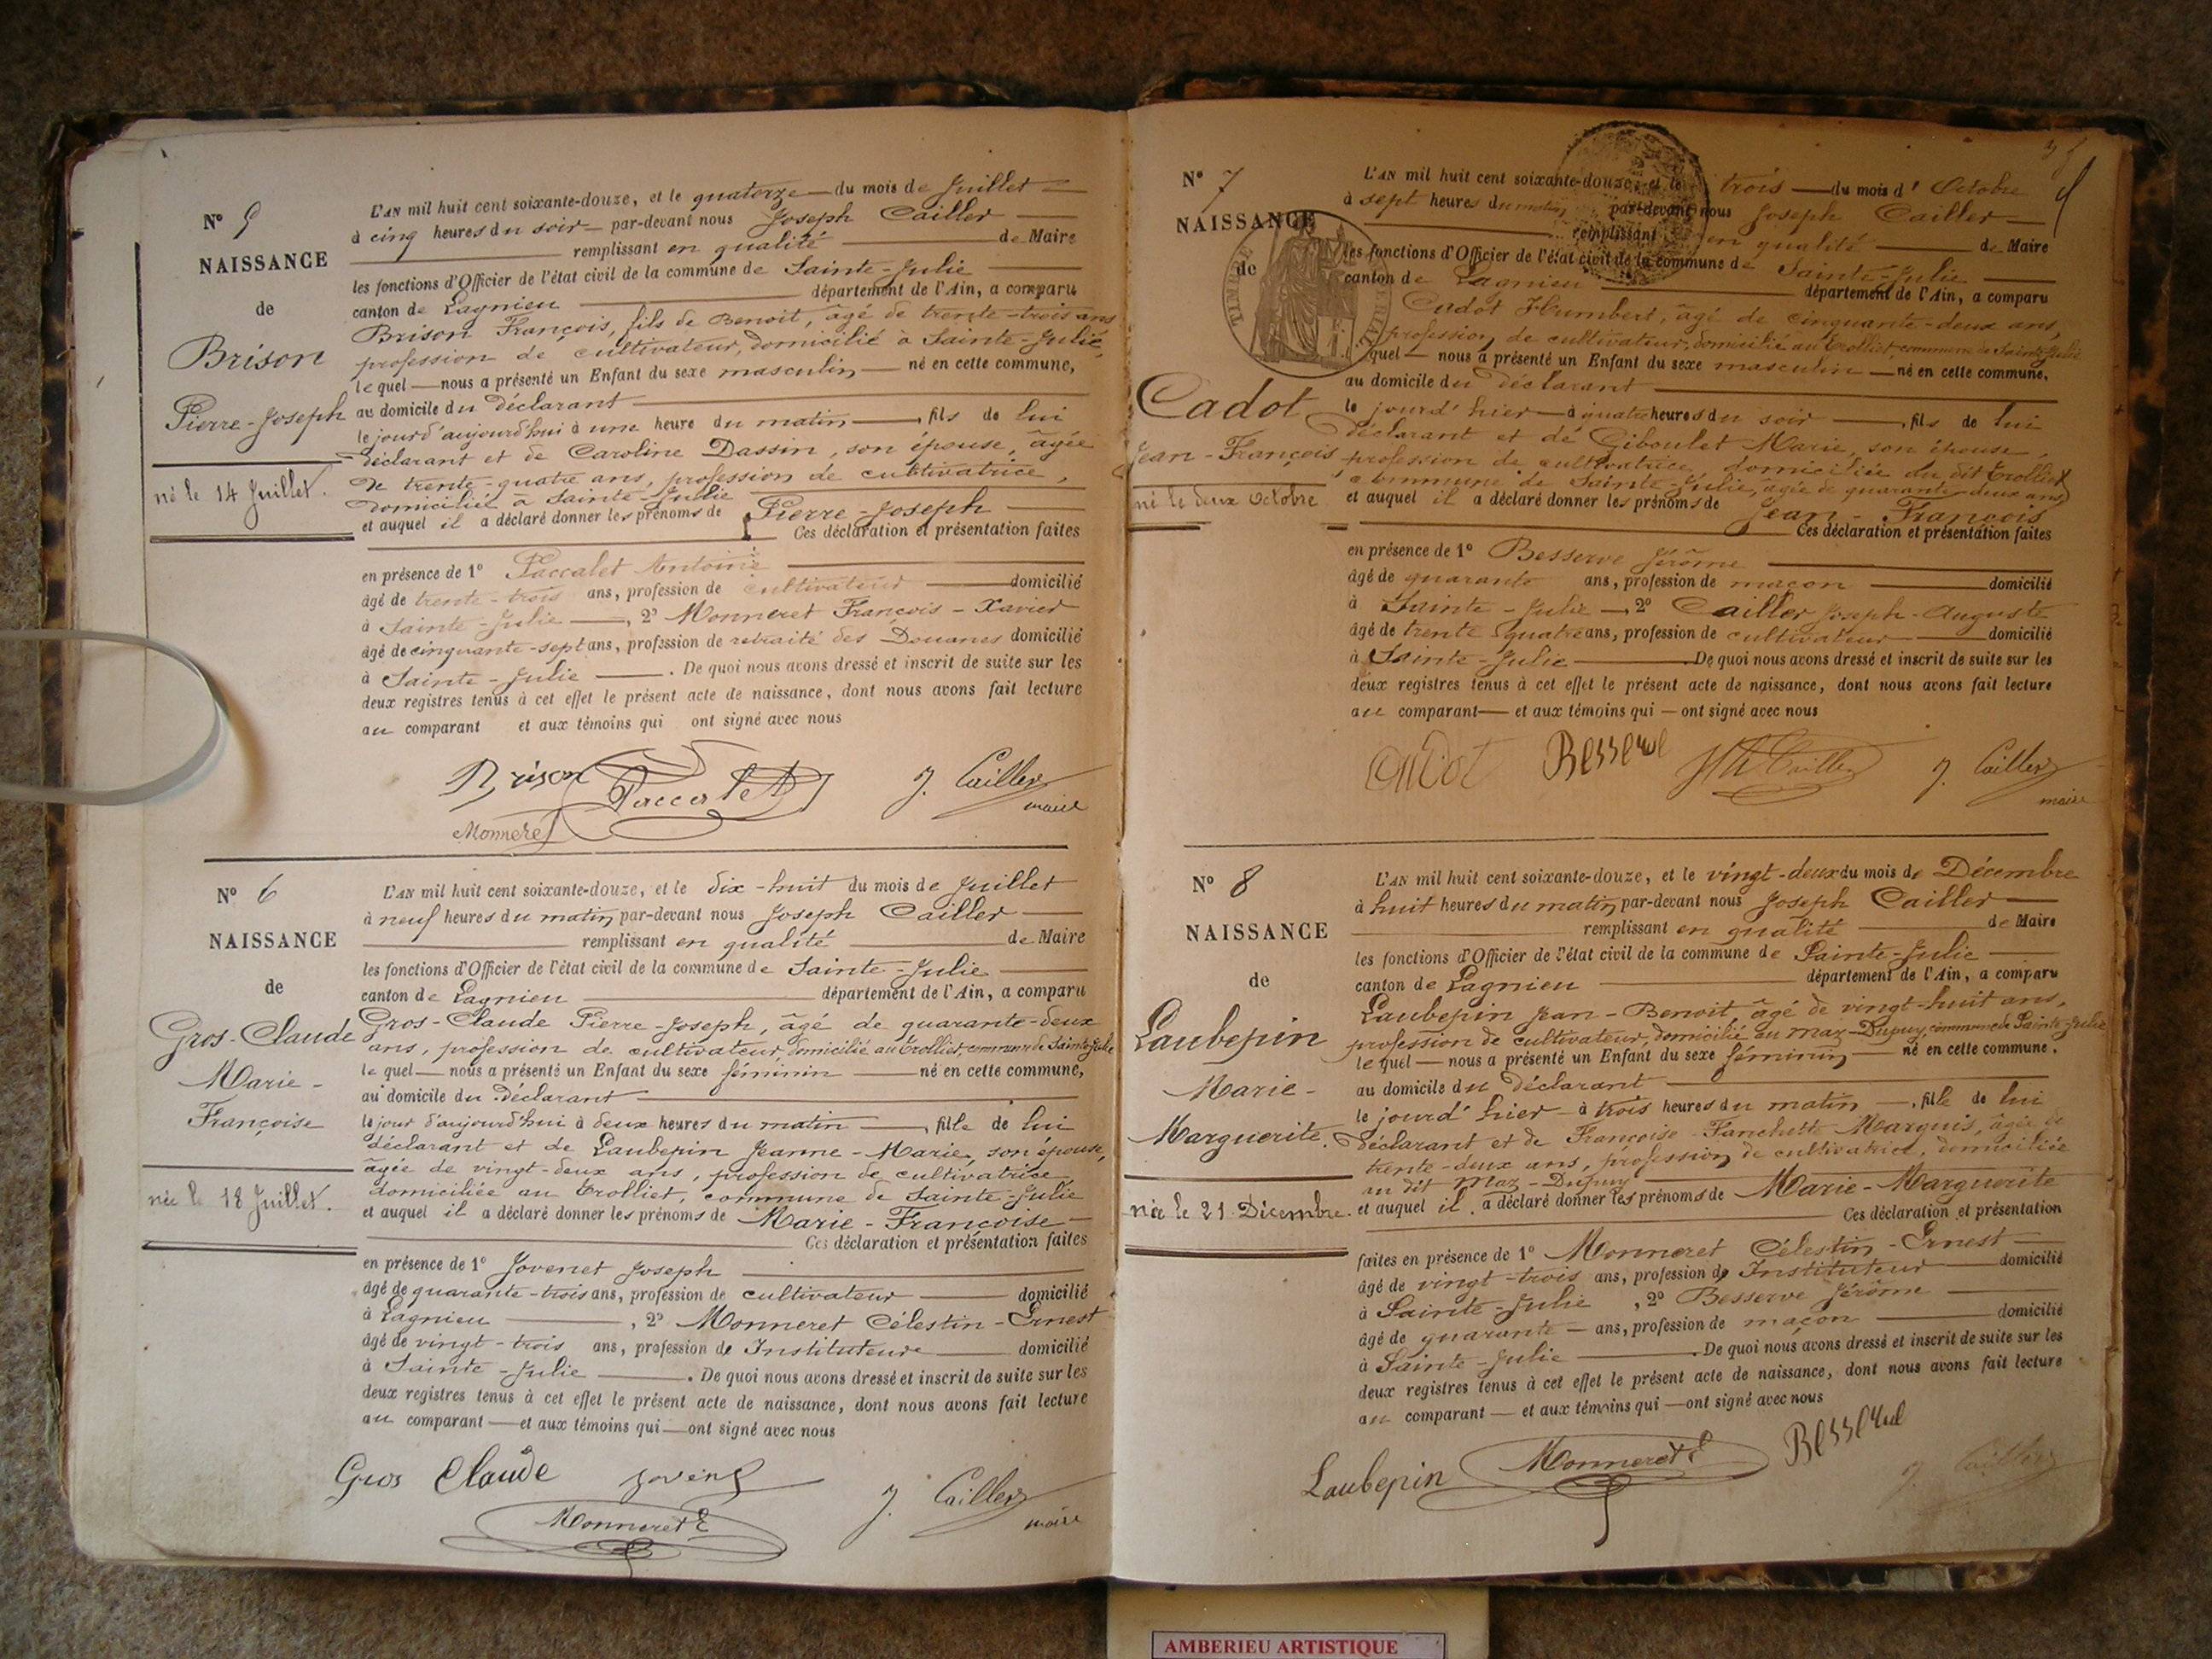 N° 5
NAISSANCE
de
Brison
Pierre-Joseph
né le 14 Juillet.
L'AN mil huit cent soixante-douze, et le quatorze du mois de Juillet
à cinq heures du soir par-devant nous Joseph Cailler
remplissant en qualité de Maire
les fonctions d'Officier de l'état civil de la commune de Sainte-Julie
canton de Lagnieu département de l'Ain, a comparu
Brison François, fils de Benoit, âgé de trente-trois ans
profession de cultivateur, domicilié à Sainte-Julie,
lequel nous a présenté un Enfant du sexe masculin né en cette commune,
au domicile du déclarant
le jourd'aujourd'hui à une heure du matin, fils de lui
déclarant et de Caroline Dassin, son épouse, âgée
de trente-quatre ans, profession de cultivatrice,
domiciliée à Sainte-Julie
et auquel il a déclaré donner les prénoms de Pierre-Joseph
Ces déclaration et présentation faites
en présence de 1° Paccalet Antoine
âgé de trente-trois ans, profession de cultivateur domicilié
à Sainte-Julie, 2° Monneret François-Xavier
âgé de cinquante-sept ans, profession de retraité des Douanes domicilié
à Sainte-Julie. De quoi nous avons dressé et inscrit de suite sur les
deux registres tenus à cet effet le présent acte de naissance, dont nous avons fait lecture
au comparant et aux témoins qui ont signé avec nous
Brison Paccalet J. Cailler
maire
Monneret
N° 6
NAISSANCE
de
Gros-Claude
Marie-
Françoise
née le 18 Juillet.
L'AN mil huit cent soixante-douze, et le dix-huit du mois de Juillet
à neuf heures du matin par-devant nous Joseph Cailler
remplissant en qualité de Maire
les fonctions d'Officier de l'état civil de la commune de Sainte-Julie
canton de Lagnieu département de l'Ain, a comparu
Gros-Claude Pierre-Joseph, âgé de quarante-deux
ans, profession de cultivateur, domicilié au Trolliet, commune de Sainte-Julie
lequel nous a présenté un Enfant du sexe féminin né en cette commune,
au domicile du déclarant
le jour d'aujourd'hui à deux heures du matin, fille de lui
déclarant et de Laubepin Jeanne-Marie, son épouse,
âgée de vingt-deux ans, profession de cultivatrice
domiciliée au Trolliet, commune de Sainte-Julie
et auquel il a déclaré donner les prénoms de Marie-Françoise
Ces déclaration et présentation faites
en présence de 1° Jovenet Joseph
âgé de quarante-trois ans, profession de cultivateur domicilié
à Lagnieu, 2° Monneret Célestin-Ernest
âgé de vingt-trois ans, profession de Instituteur domicilié
à Sainte-Julie. De quoi nous avons dressé et inscrit de suite sur les
deux registres tenus à cet effet le présent acte de naissance, dont nous avons fait lecture
au comparant et aux témoins qui ont signé avec nous
Gros Claude J. Cailler
maire
Monneret E
N° 7
NAISSANCE
de
Cadot
Jean-François
né le deux Octobre
TIMBRE
L'AN mil huit cent soixante-douze, et le trois du mois d'Octobre
à sept heures du matin par-devant nous Joseph Cailler
remplissant en qualité de Maire
les fonctions d'Officier de l'état civil de la commune de Sainte-Julie
canton de Lagnieu département de l'Ain, a comparu
Cadot Humbert, âgé de cinquante-deux ans,
profession de cultivateur, domicilié au Trolliet, commune de Sainte-Julie
quel nous a présenté un Enfant du sexe masculin né en cette commune,
au domicile du déclarant
le jourd'hier à quatre heures du soir, fils de lui
déclarant et de Giboulet Marie, son épouse,
profession de cultivatrice, domiciliée au dit Trolliet
commune de Sainte-Julie, âgée de quarante-deux ans
et auquel il a déclaré donner les prénoms de Jean-François
Ces déclaration et présentation faites
en présence de 1° Besserve Jérôme
âgé de quarante ans, profession de maçon domicilié
à Sainte-Julie, 2° Cailler Joseph-Auguste
âgé de trente quatre ans, profession de cultivateur domicilié
à Sainte-Julie. De quoi nous avons dressé et inscrit de suite sur les
deux registres tenus à cet effet le présent acte de naissance, dont nous avons fait lecture
au comparant et aux témoins qui ont signé avec nous
Cadot Besserve Cailler J. Cailler
maire
N° 8
NAISSANCE
de
Laubepin
Marie-
Marguerite.
née le 21 Décembre.
L'AN mil huit cent soixante-douze, et le vingt-deux du mois de Décembre
à huit heures du matin par-devant nous Joseph Cailler
remplissant en qualité de Maire
les fonctions d'Officier de l'état civil de la commune de Sainte-Julie
canton de Lagnieu département de l'Ain, a comparu
Laubepin Jean-Benoit, âgé de vingt-huit ans,
profession de cultivateur, domicilié au Maz-Dupuy, commune de Sainte-Julie
lequel nous a présenté un Enfant du sexe féminin né en cette commune.
au domicile du déclarant
le jourd'hier à trois heures du matin, fille de lui
déclarant et de Françoise Fanchette Marquis, âgée de
trente-deux ans, profession de cultivatrice, domiciliée
au dit Maz-Dupuy
et auquel il a déclaré donner les prénoms de Marie-Marguerite
Ces déclaration et présentation
faites en présence de 1° Monneret Célestin-Ernest
âgé de vingt-trois ans, profession de Instituteur domicilié
à Sainte-Julie, 2° Besserve Jérôme
âgé de quarante ans, profession de maçon domicilié
à Sainte-Julie. De quoi nous avons dressé et inscrit de suite sur les
deux registres tenus à cet effet le présent acte de naissance, dont nous avons fait lecture
au comparant et aux témoins qui ont signé avec nous
Laubepin Monneret E Besserve J. Cailler
AMBERIEU ARTISTIQUE